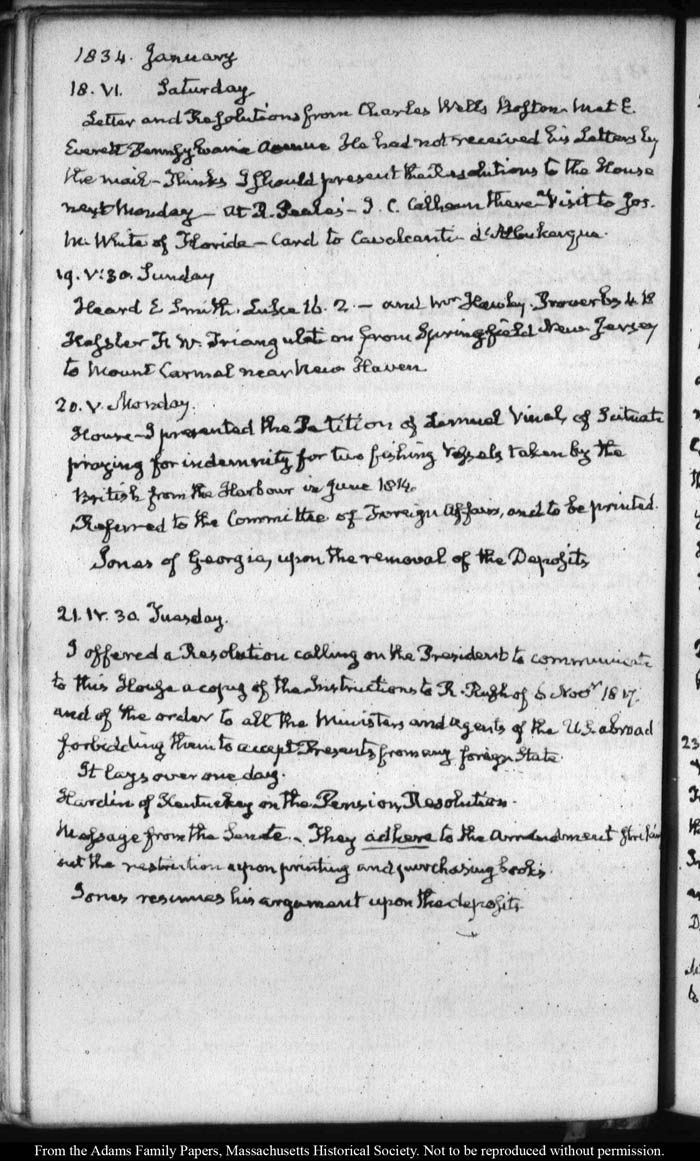 1834. January
18. VI. Saturday
Letter and Resolutions from Charles Wells Boston. Met E.
Everett Pennsylvania Avenue He had not received his Letters by
the mail - Thinks I should present the Resolutions to the House
next Monday - at R. Peale's - J. C. Calhoun there - Visit to Jos.
M. White of Florida - Card to Cavalcanti d'Albukerque.
19. V:30. Sunday
Heard E Smith. Luke 16. 2. - and Mr Hawley. Proverbs 4. 18
Hassler F. W. Triangulation from Springfield New Jersey
to Mount Carmel near New Haven
20. V. Monday.
House - I presented the Petition of Lemuel Vinal, of Scituate
praying for indemnity for two fishing Vessels taken by the
British from the Harbour in June 1814.
Referred to the Committee of Foreign Affairs, and to be printed.
Jones of Georgia, upon the removal of the Deposits
21. IV. 30. Tuesday.
I offered a Resolution calling on the President to communicate
to this House a copy of the Instructions to R. Rush of 6 Novr 1817.
and of the order to all the Ministers and agents of the U.S. abroad
forbidding them to accept Presents from any foreign State.
It lays over one day.
Hardin of Kentucky on the Pension Resolution.
Message from the Senate. - They adhere to the Amendment striking
out the restriction upon printing and purchasing books.
Jones resumes his argument upon the deposits
23
From the Adams Family Papers, Massachusetts Historical Society. Not to be reproduced without permission.